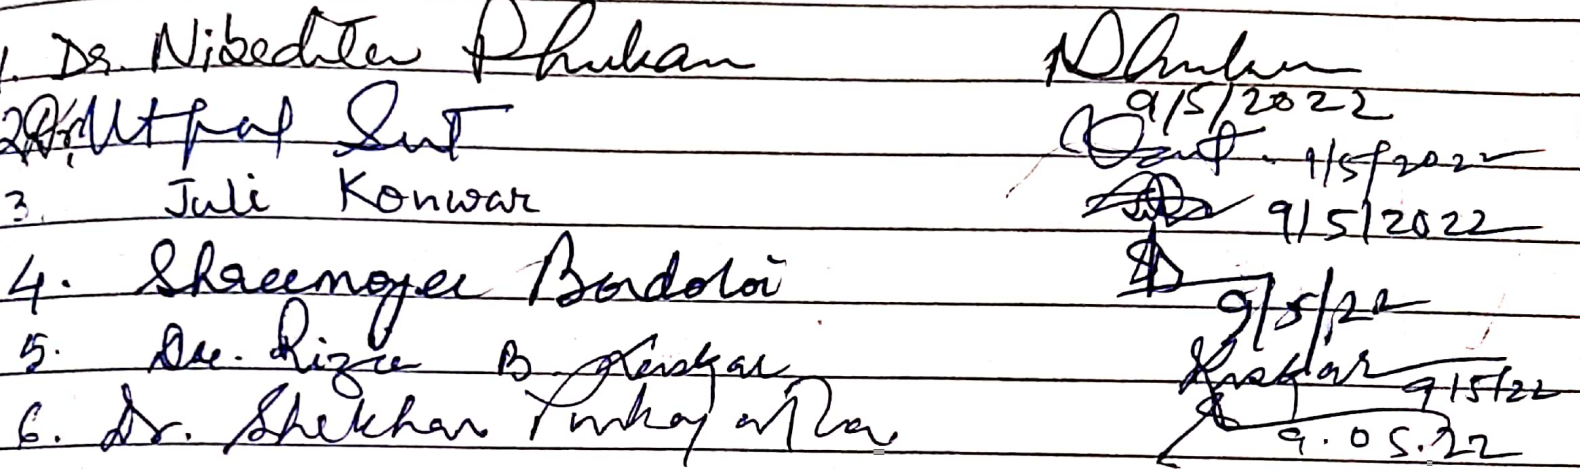 1. Dr. Nibedita Phukan Phukan
9/5/2022
2. Dr. Utpal Sut Sut. 9/5/2022
3. Juli Konwar 9/5/2022
4. Shreemoyee Bordoloi
9/5/22
5. Dr. Rizu B. 9/5/22
6. Dr. Shekhar Purkayastha 9.05.22